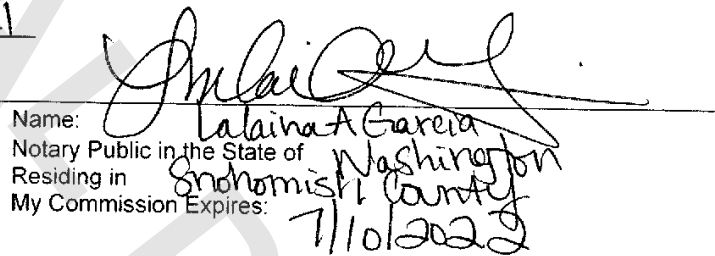 Name: Lalaina A Garcia
Notary Public in the State of Washington
Residing in Snohomish County
My Commission Expires: 7/10/2022